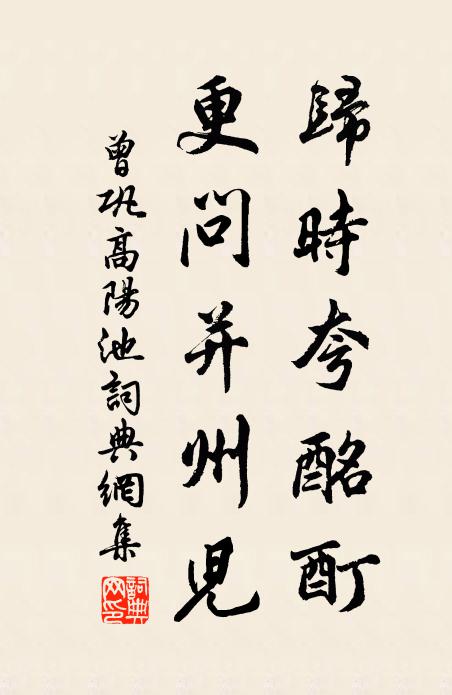 歸時夸酩酊
更問并州兒
曾巩高陽池詞典網集
詞典網印